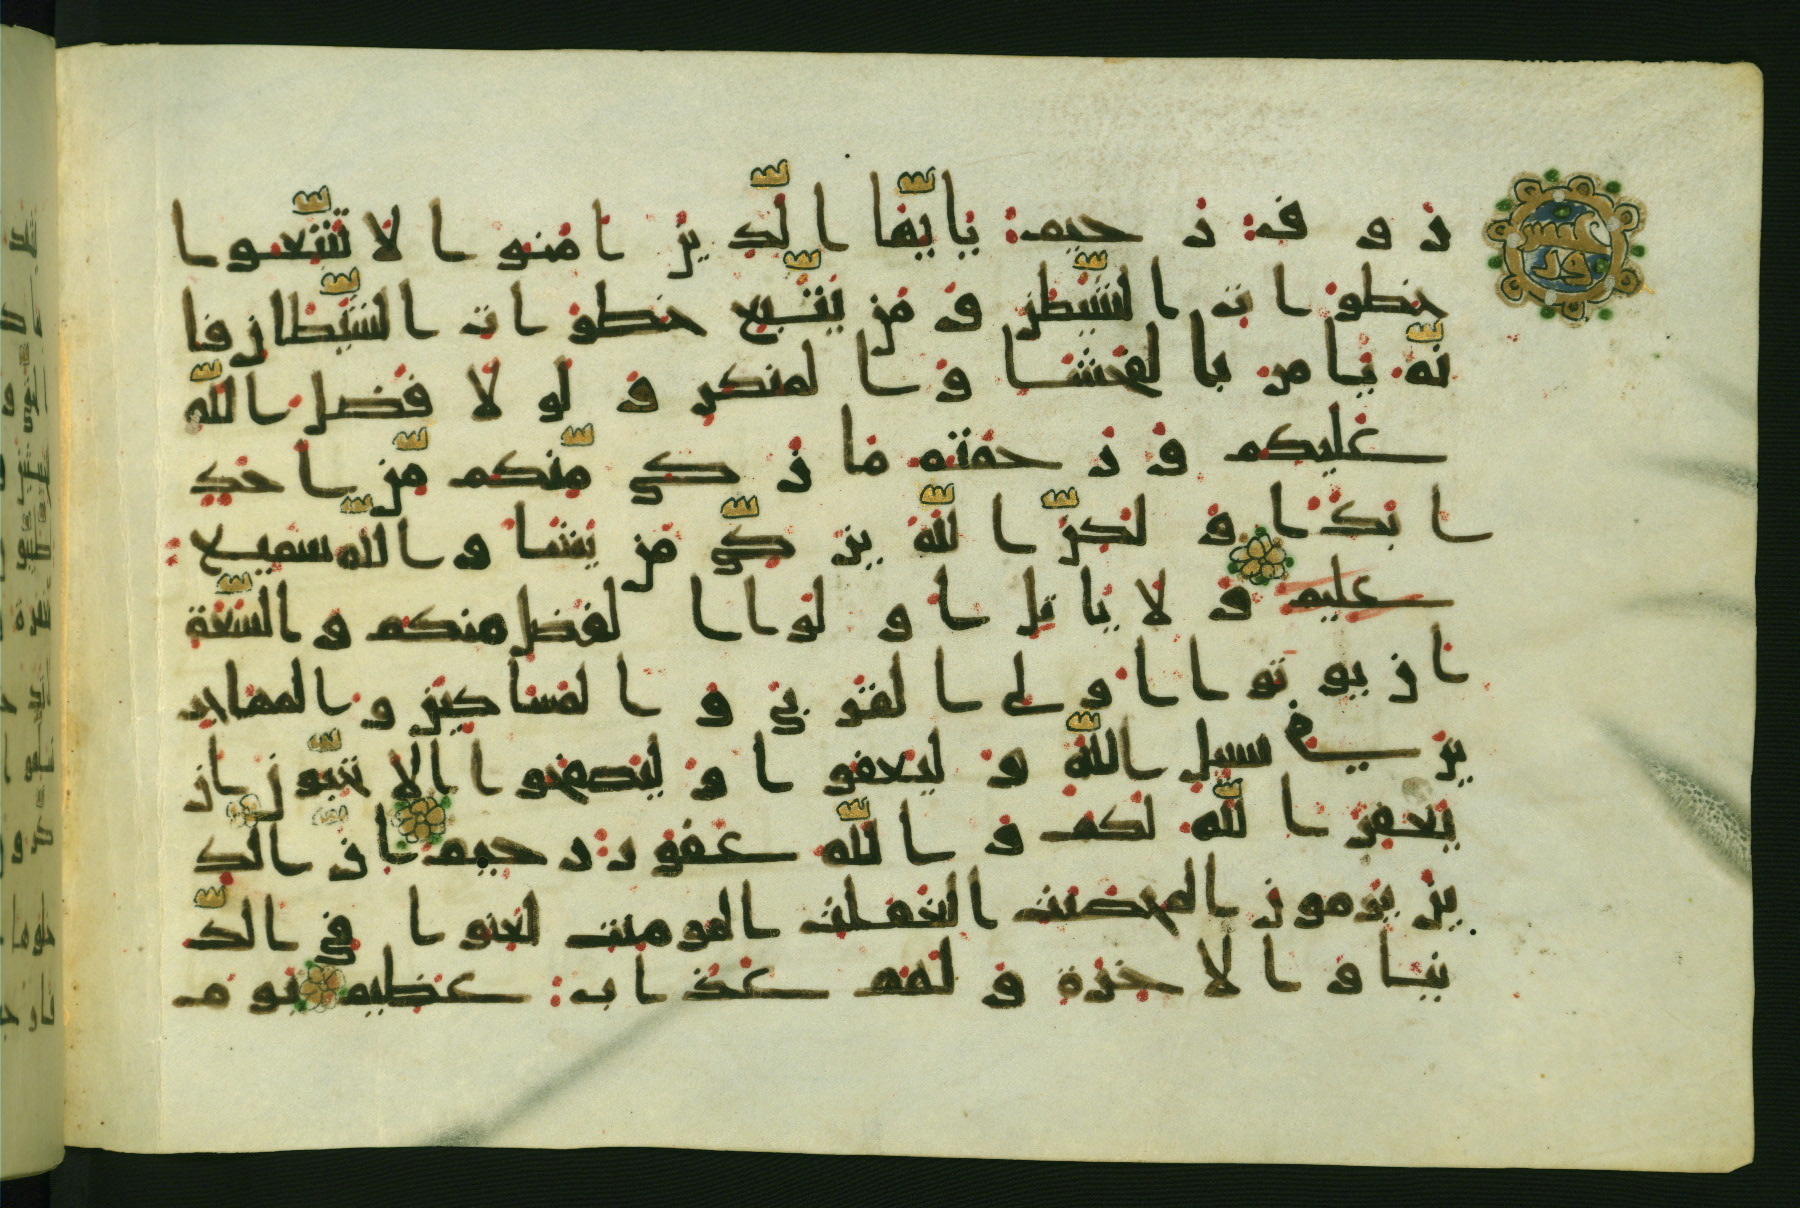 عشرون
رو ف ر حيم يايها الذين امنوا لا تتبعوا
خطوات الشيطن و من يتبع خطوات الشيطان فا
نه يامر بالفحشا و المنكر و لو لا فضل الله
عليكم و ر حمته ما ز كى منكم من احد
ابدا و لكن الله يز كى من يشا و الله سميع
عليم و لا ياتل ا و لوا ا لفضل منكم و السعة
ان يو توا ا و لى القر بى و المساكين و المهاجر
ين في سبيل الله و ليعفوا و ليصفحوا الا تحبون ان
يغفر الله لكم و الله غفور ر حيم ان الذ
ين يرمون المحصنت الغفلت المومنت لعنوا في الد
نيا و الا خرة و لهم عذاب عظيم يوم